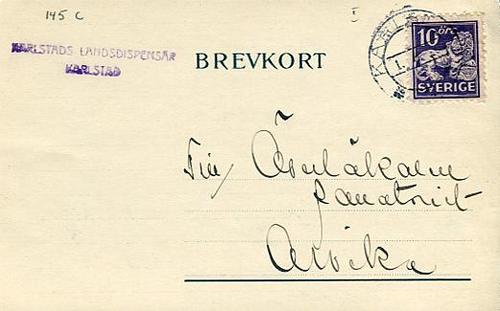 145 C
I
KARLSTADS LANDSDISPENSÄR
KARLSTAD
BREVKORT
10 öre
SVERIGE
Till Överläkaren
Sanatoriet
Arvika